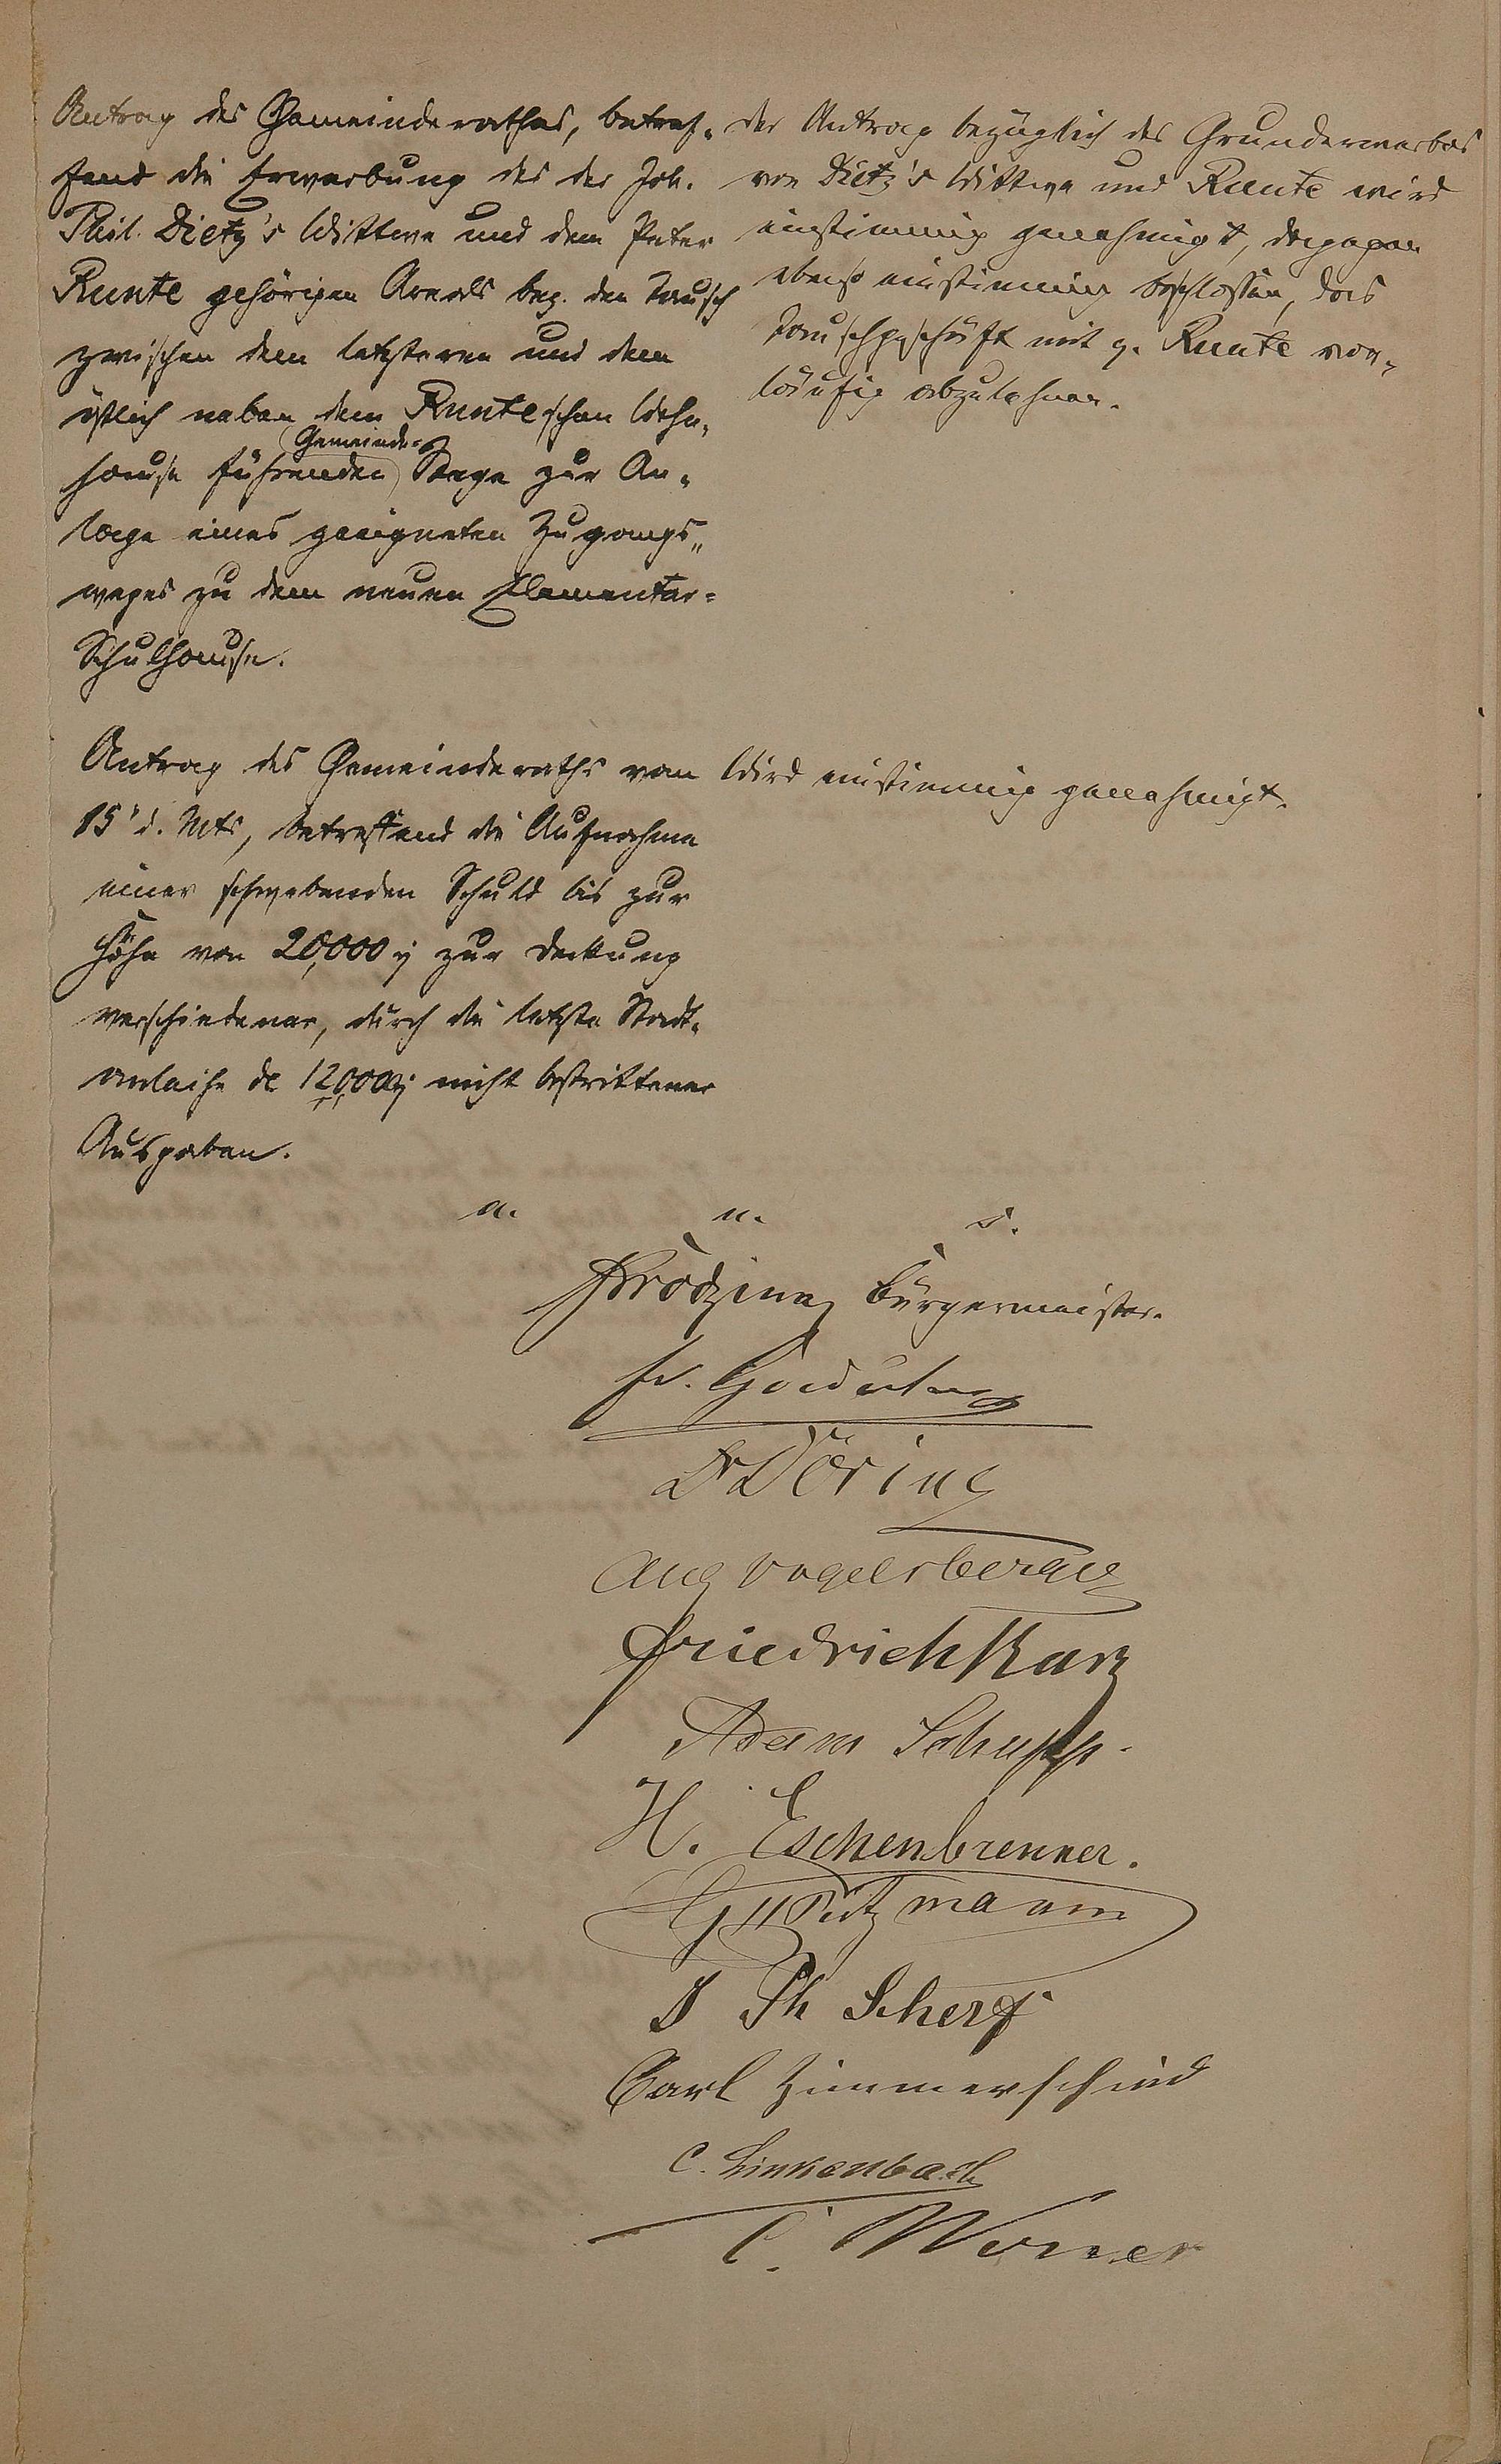 Antrag des Gemeinderathes, betref-
fend die Erwerbung des der Joh.
Phil. Dietz's Wittwe und dem Peter
Runte gehörigen Areals bez. den Tausch
zwischen dem letzteren und dem
östlich neben dem Runteschen Wohn-
hause führenden Gemeinde-Wege zur An-
lage eines geeigneten Zugangs-
weges zu dem neuen Elementar-
Schulhause.
der Antrag bezüglich des Grunderwerbes
von Dietz's Wittwe und Runte wird
einstimmig genehmigt, dagegen
ebenso einstimmig beschlossen, das
Tauschgeschäft mit g. Runte vor-
läufig abzulehnen.
Antrag des Gemeinderaths vom
15' d. Mts, betreffend die Aufnahme
einer schwebenden Schuld bis zur
Höhe von 20,000 zur Deckung
verschiedener, durch die letzte Stadt-
anleihe de 120,000 nicht bestrittener
Ausgaben.
Wird einstimmig genehmigt.
a. u. s.
Bürgermeister.
Fr.
Dr Döring
Aug Vogelsberger
Friedrich Kurz
Adam Schupp.
H. Eschenbrenner.
J Ph Scherf
Carl Zimmerschied
C. Linkenbach
C.